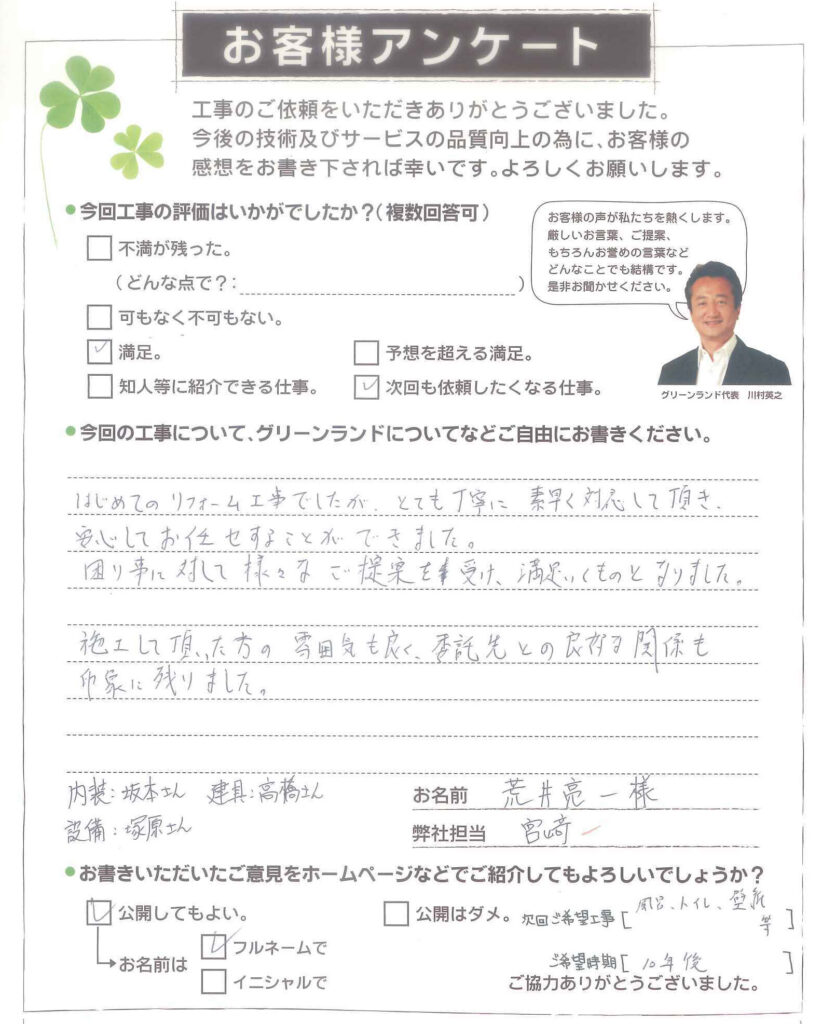 お客様アンケート
工事のご依頼をいただきありがとうございました。
今後の技術及びサービスの品質向上の為に、お客様の
感想をお書き下されば幸いです。よろしくお願いします。
今回工事の評価はいかがでしたか？(複数回答可)
不満が残った。
(どんな点で？: )
可もなく不可もない。
満足。
予想を超える満足。
知人等に紹介できる仕事。
次回も依頼したくなる仕事。
お客様の声が私たちを熱くします。
厳しいお言葉、ご提案、
もちろんお誉めの言葉など
どんなことでも結構です。
是非お聞かせください。
グリーンランド代表 川村英之
今回の工事について、グリーンランドについてなどご自由にお書きください。
はじめてのリフォーム工事でしたが、とても丁寧に 素早く対応して頂き、
安心してお任せすることができました。
困り事に対して様々なご提案を受け、満足いくものとなりました。
施工して頂いた方の雰囲気も良く、委託先との良好な関係も
印象に残りました。
内装:坂本さん 建具:高橋さん
設備:塚原さん
お名前 荒井亮一様
弊社担当 宮崎
お書きいただいたご意見をホームページなどでご紹介してもよろしいでしょうか？
公開してもよい。
公開はダメ。
次回ご希望工事[風呂、トイレ、壁紙等]
お名前は
フルネームで
イニシャルで
ご希望時期[10年後]
ご協力ありがとうございました。